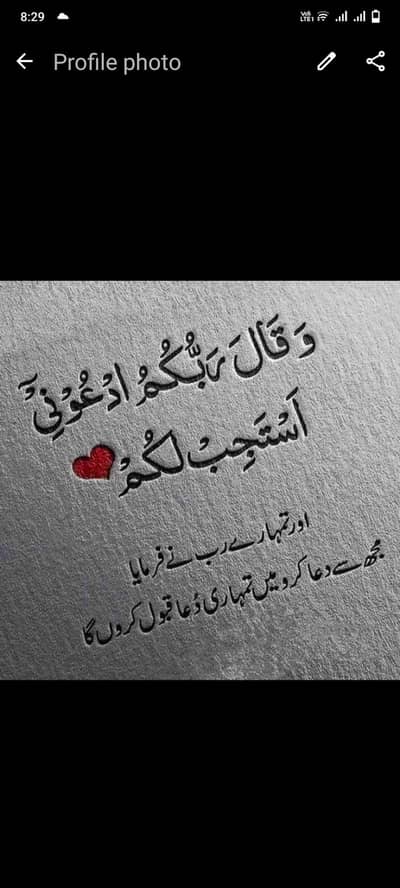 8:29
Profile photo
وَ قَالَ رَبُّكُمُ ادْعُوْنِیْۤ
اَسْتَجِبْ لَكُمْ
اور تمہارے رب نے فرمایا
مجھ سے دعا کرو میں تمہاری دُعا قبول کروں گا